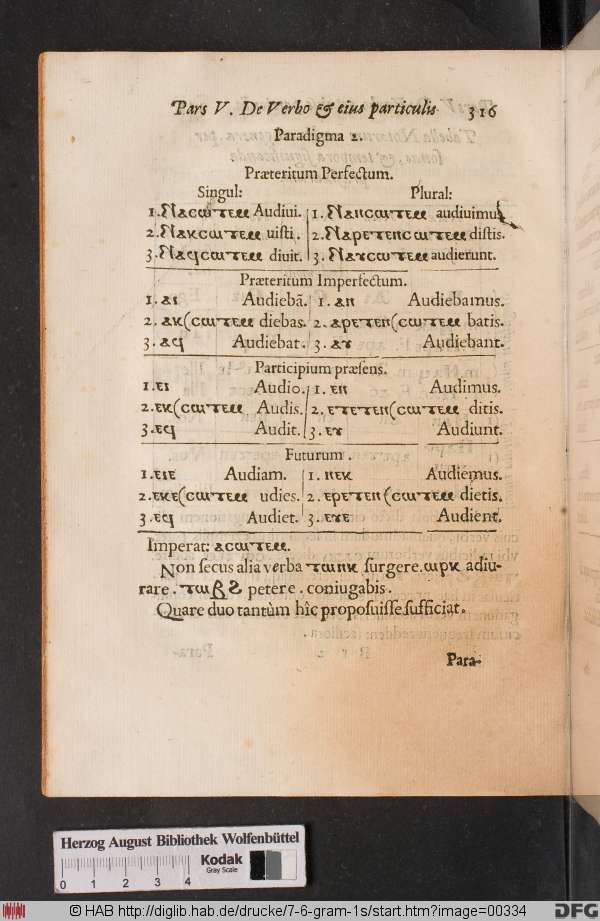 Pars V. De Verbo & eius particulis 316
Paradigma 2.
Præteritum Perfectum.
Singul: Plural:
1. ⲛⲁⲥⲱⲧⲉⲙ Audiui. 1. ⲛⲁⲛⲥⲱⲧⲉⲙ audiuimus
2. ⲛⲁⲕⲥⲱⲧⲉⲙ uisti. 2. ⲛⲁⲣⲉⲧⲉⲛⲥⲱⲧⲉⲙ distis.
3. ⲛⲁϥⲥⲱⲧⲉⲙ diuit. 3. ⲛⲁⲩⲥⲱⲧⲉⲙ audierunt.
Præteritum Imperfectum.
1. ⲁⲓ Audiebã. 1. ⲁⲛ Audiebamus.
2. ⲁⲕ(ⲥⲱⲧⲉⲙ diebas. 2. ⲁⲣⲉⲧⲉⲛ(ⲥⲱⲧⲉⲙ batis.
3. ⲁϥ Audiebat. 3. ⲁⲩ Audiebant.
Participium præsens.
1. ⲉⲓ Audio. 1. ⲉⲛ Audimus.
2. ⲉⲕ(ⲥⲱⲧⲉⲙ Audis. 2. ⲉⲧⲉⲧⲉⲛ(ⲥⲱⲧⲉⲙ ditis.
3. ⲉϥ Audit. 3. ⲉⲩ Audiunt.
Futurum.
1. ⲉⲓⲉ Audiam. 1. ⲛⲉⲕ Audiemus.
2. ⲉⲕⲉ(ⲥⲱⲧⲉⲙ udies. 2. ⲉⲣⲉⲧⲉⲛ(ⲥⲱⲧⲉⲙ dietis.
3. ⲉϥ Audiet. 3. ⲉⲩⲉ Audient.
Imperat: ⲁⲥⲱⲧⲉⲙ.
Non secus alia verba ⲧⲱⲛⲕ surgere. ⲱⲣⲕ adiu-
rare. ⲧⲱⲃϩ petere. coniugabis.
Quare duo tantùm hîc proposuisse sufficiat.
Para-
Herzog August Bibliothek Wolfenbüttel
0 1 2 3 4
Kodak
Gray Scale
© HAB http://diglib.hab.de/drucke/7-6-gram-1s/start.htm?image=00334
DFG